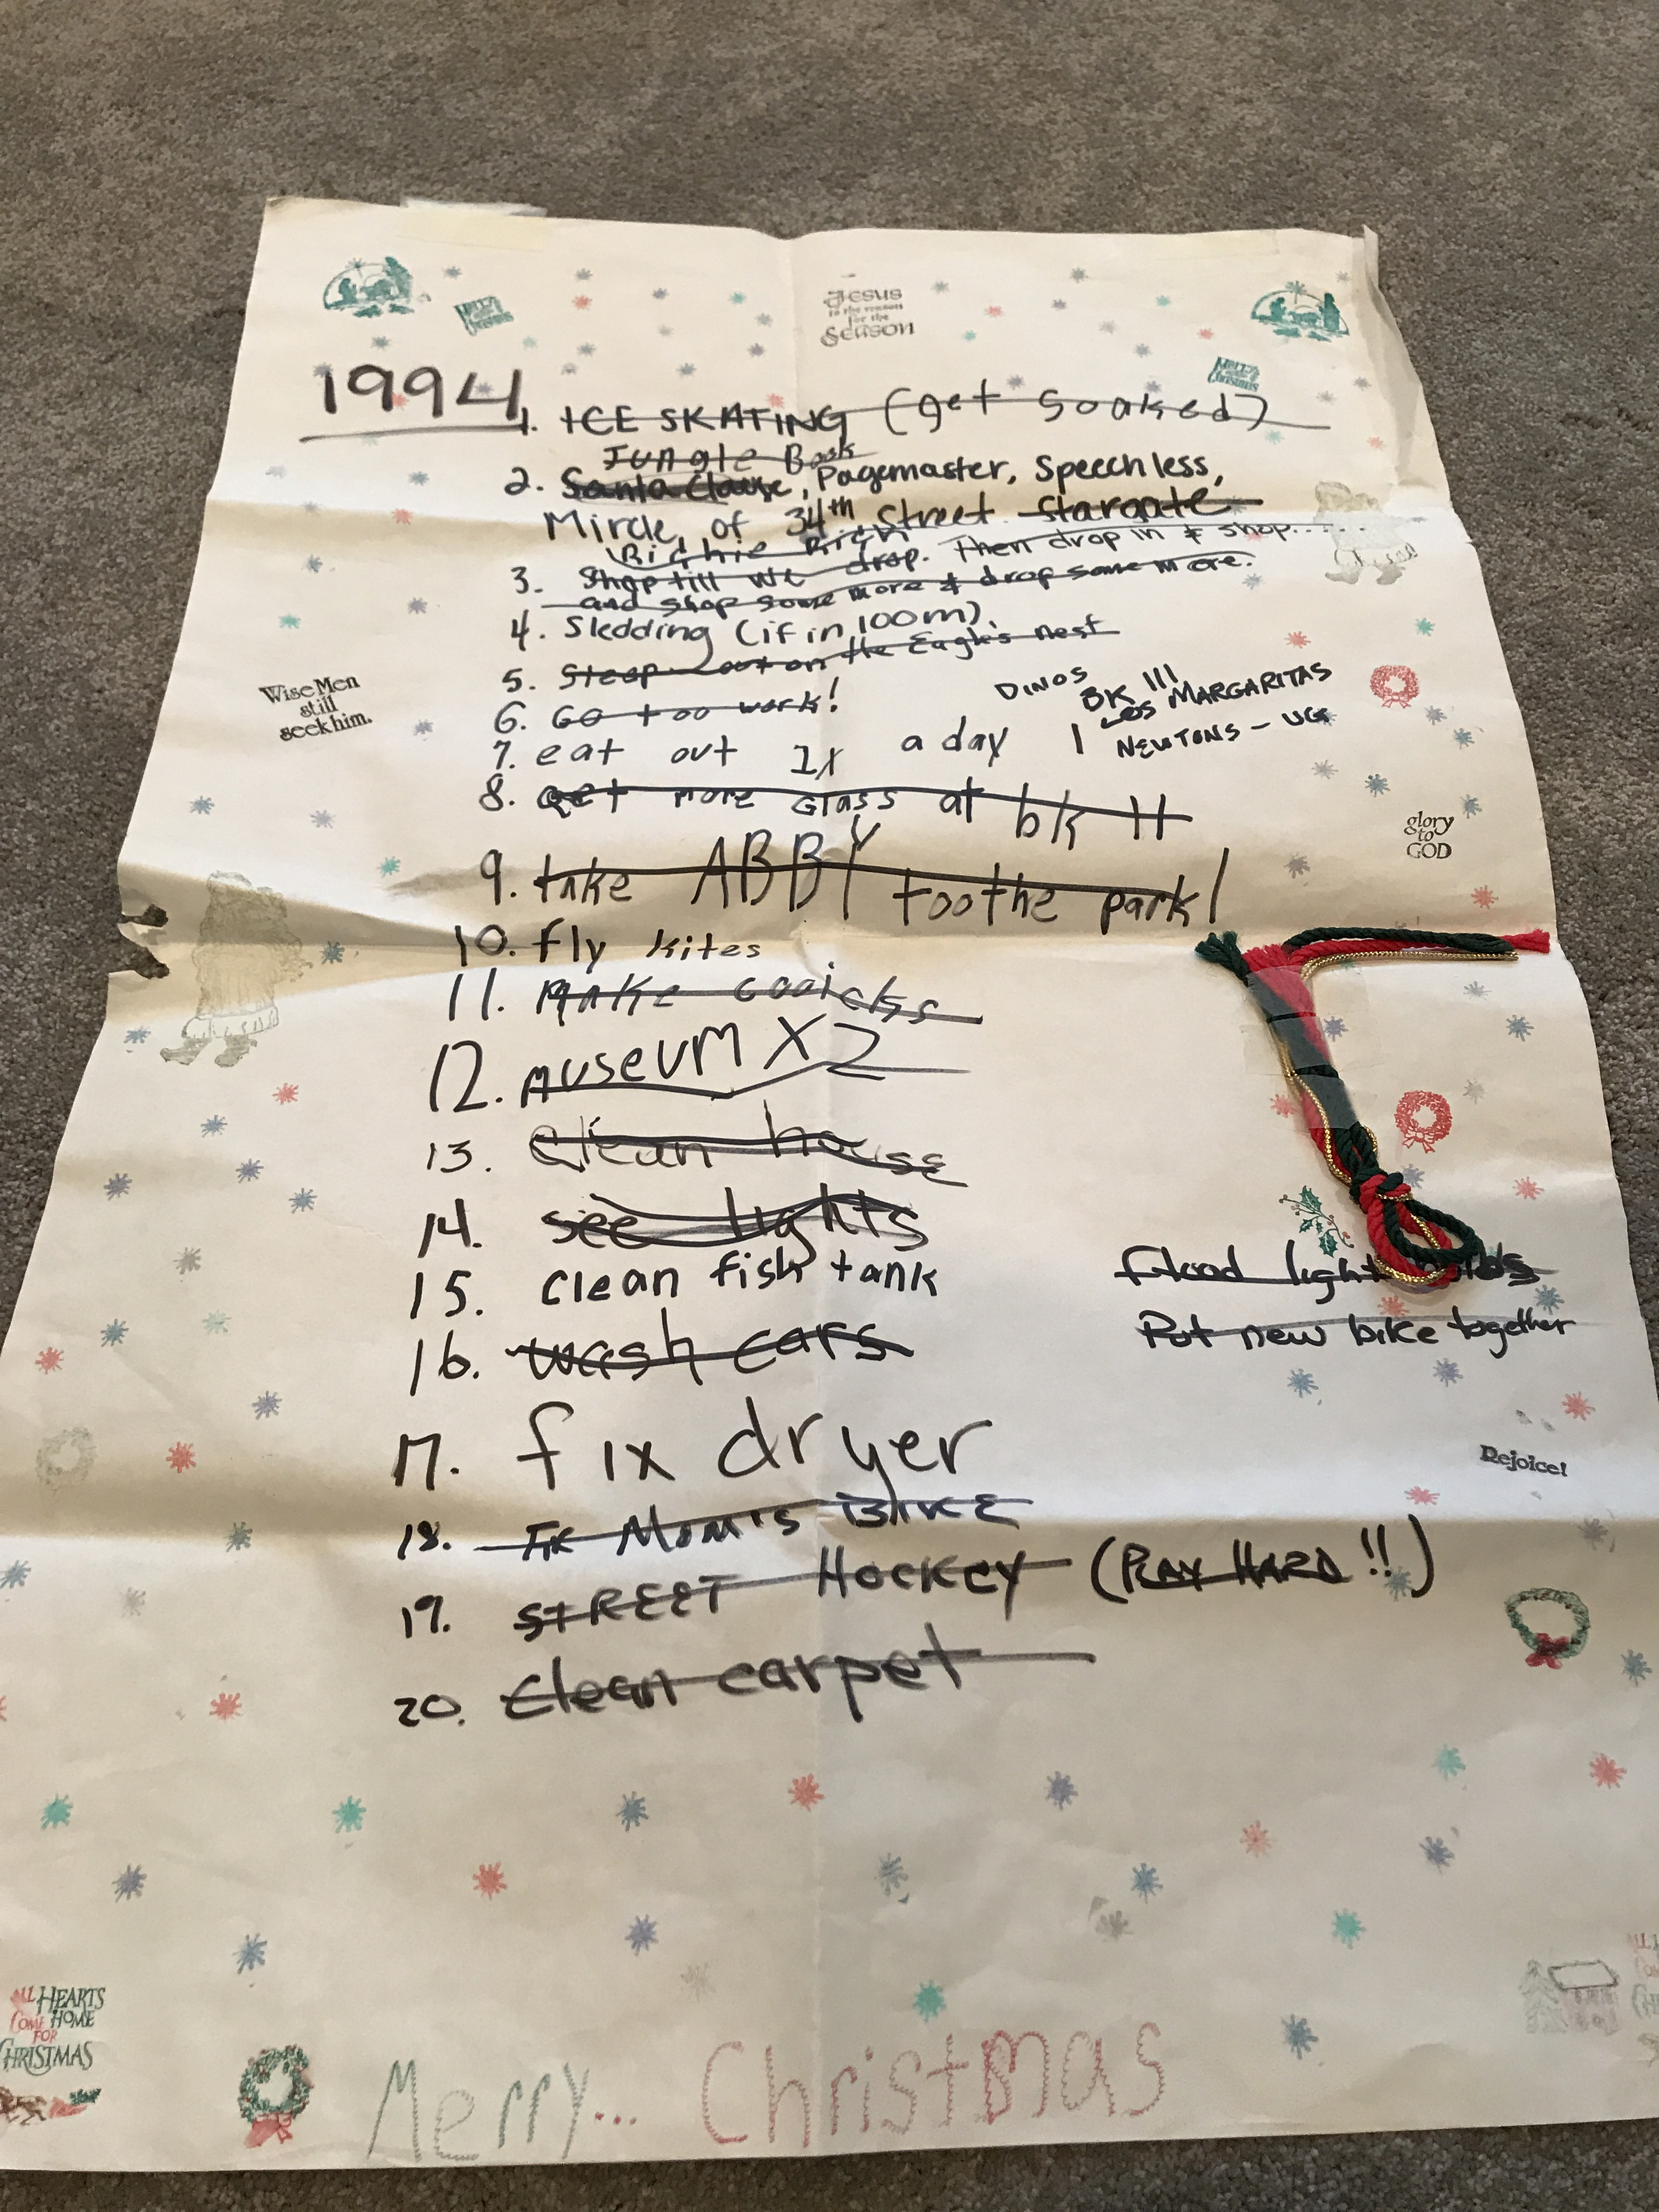 Jesus
is the reason
for the
Season
1994
1. ICE SKATING (get soaked)
Jungle Book
2. Santa Clause, Pagemaster, Speechless,
Mircle, of 34th Street Stargate
Richie Rich
3. Shop till we drop. Then drop in & shop......
and shop some more & drop some more.
4. Sledding (if in 100m).
5. Sleep out on the Eagle's nest
6. Go too work!
7. eat out 1x a day
DINOS
BK III
LOS MARGARITAS
NEWTONS - UG
8. Get more Glass at bk
9. take ABBY toothe park!
10. fly kites
11. Make cooicks
12. museum X2
13. Clean house
14. see lights
15. clean fish tank
16. wash cars
17. fix dryer
18. Fix Mom's BIKE
19. STREET HOCKEY (PLAY HARD!!)
20. Clean carpet
Wise Men
still
seek him.
glory
to
GOD
Flood light
Put new bike together
Rejoice!
ALL HEARTS
COME HOME
FOR
CHRISTMAS
Merry... Christmas